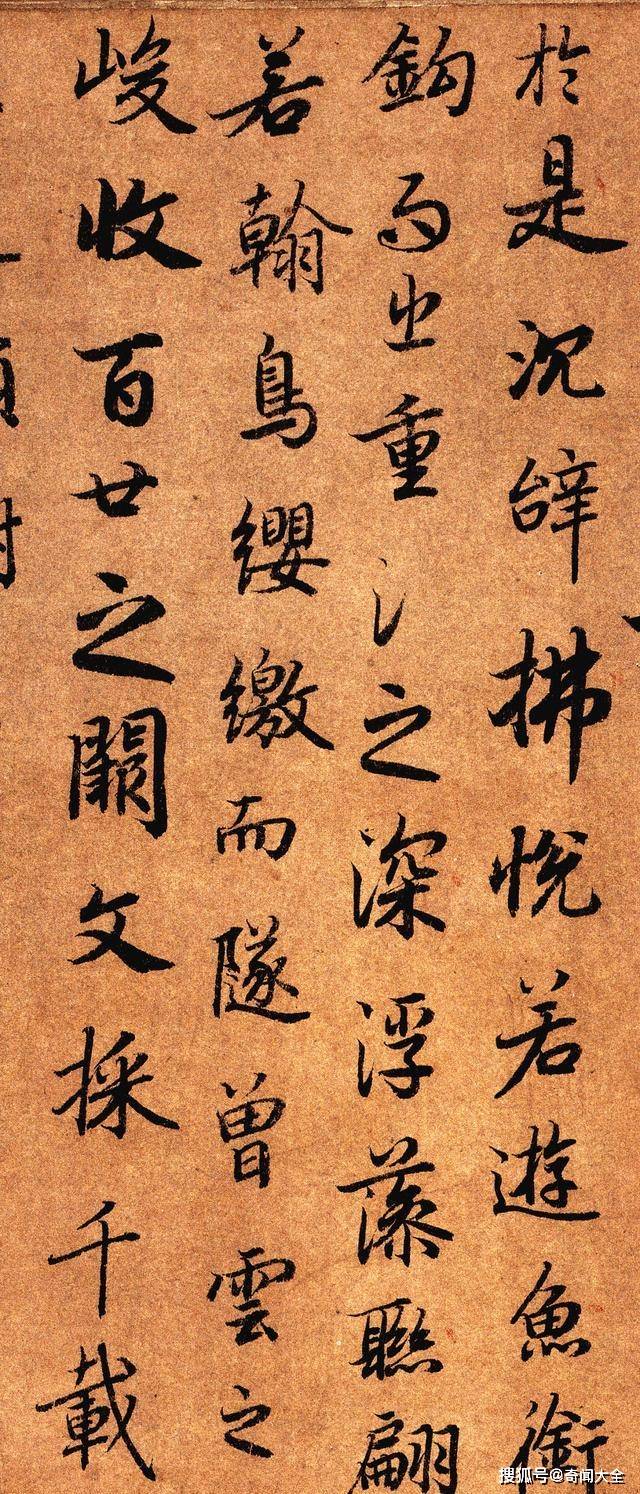 於是沉辭拂悅若遊魚銜
鈎而出重氵之深浮藻聮翩
若翰鳥纓繳而隧曾雲之
峻收百廿之闕文採千載
搜狐号@奇闻大全